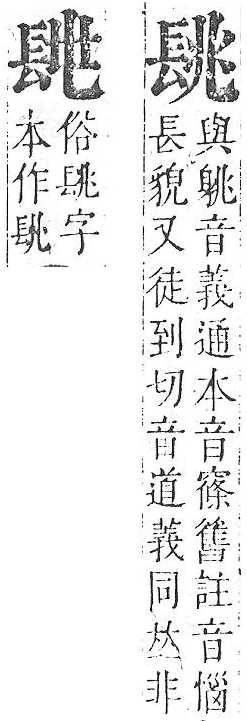 與䠷音義通本音窱舊註音惱
長貌又徒到切音道義同𠀤非
俗字
本作